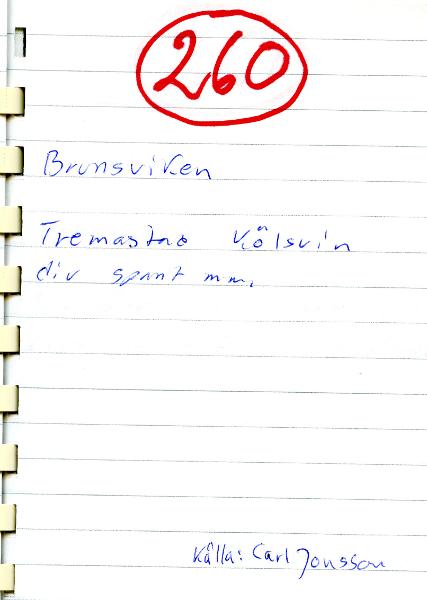 260
Brunsviken
Tremastad Kölsvin
div spant mm.
Källa: Carl Jonsson